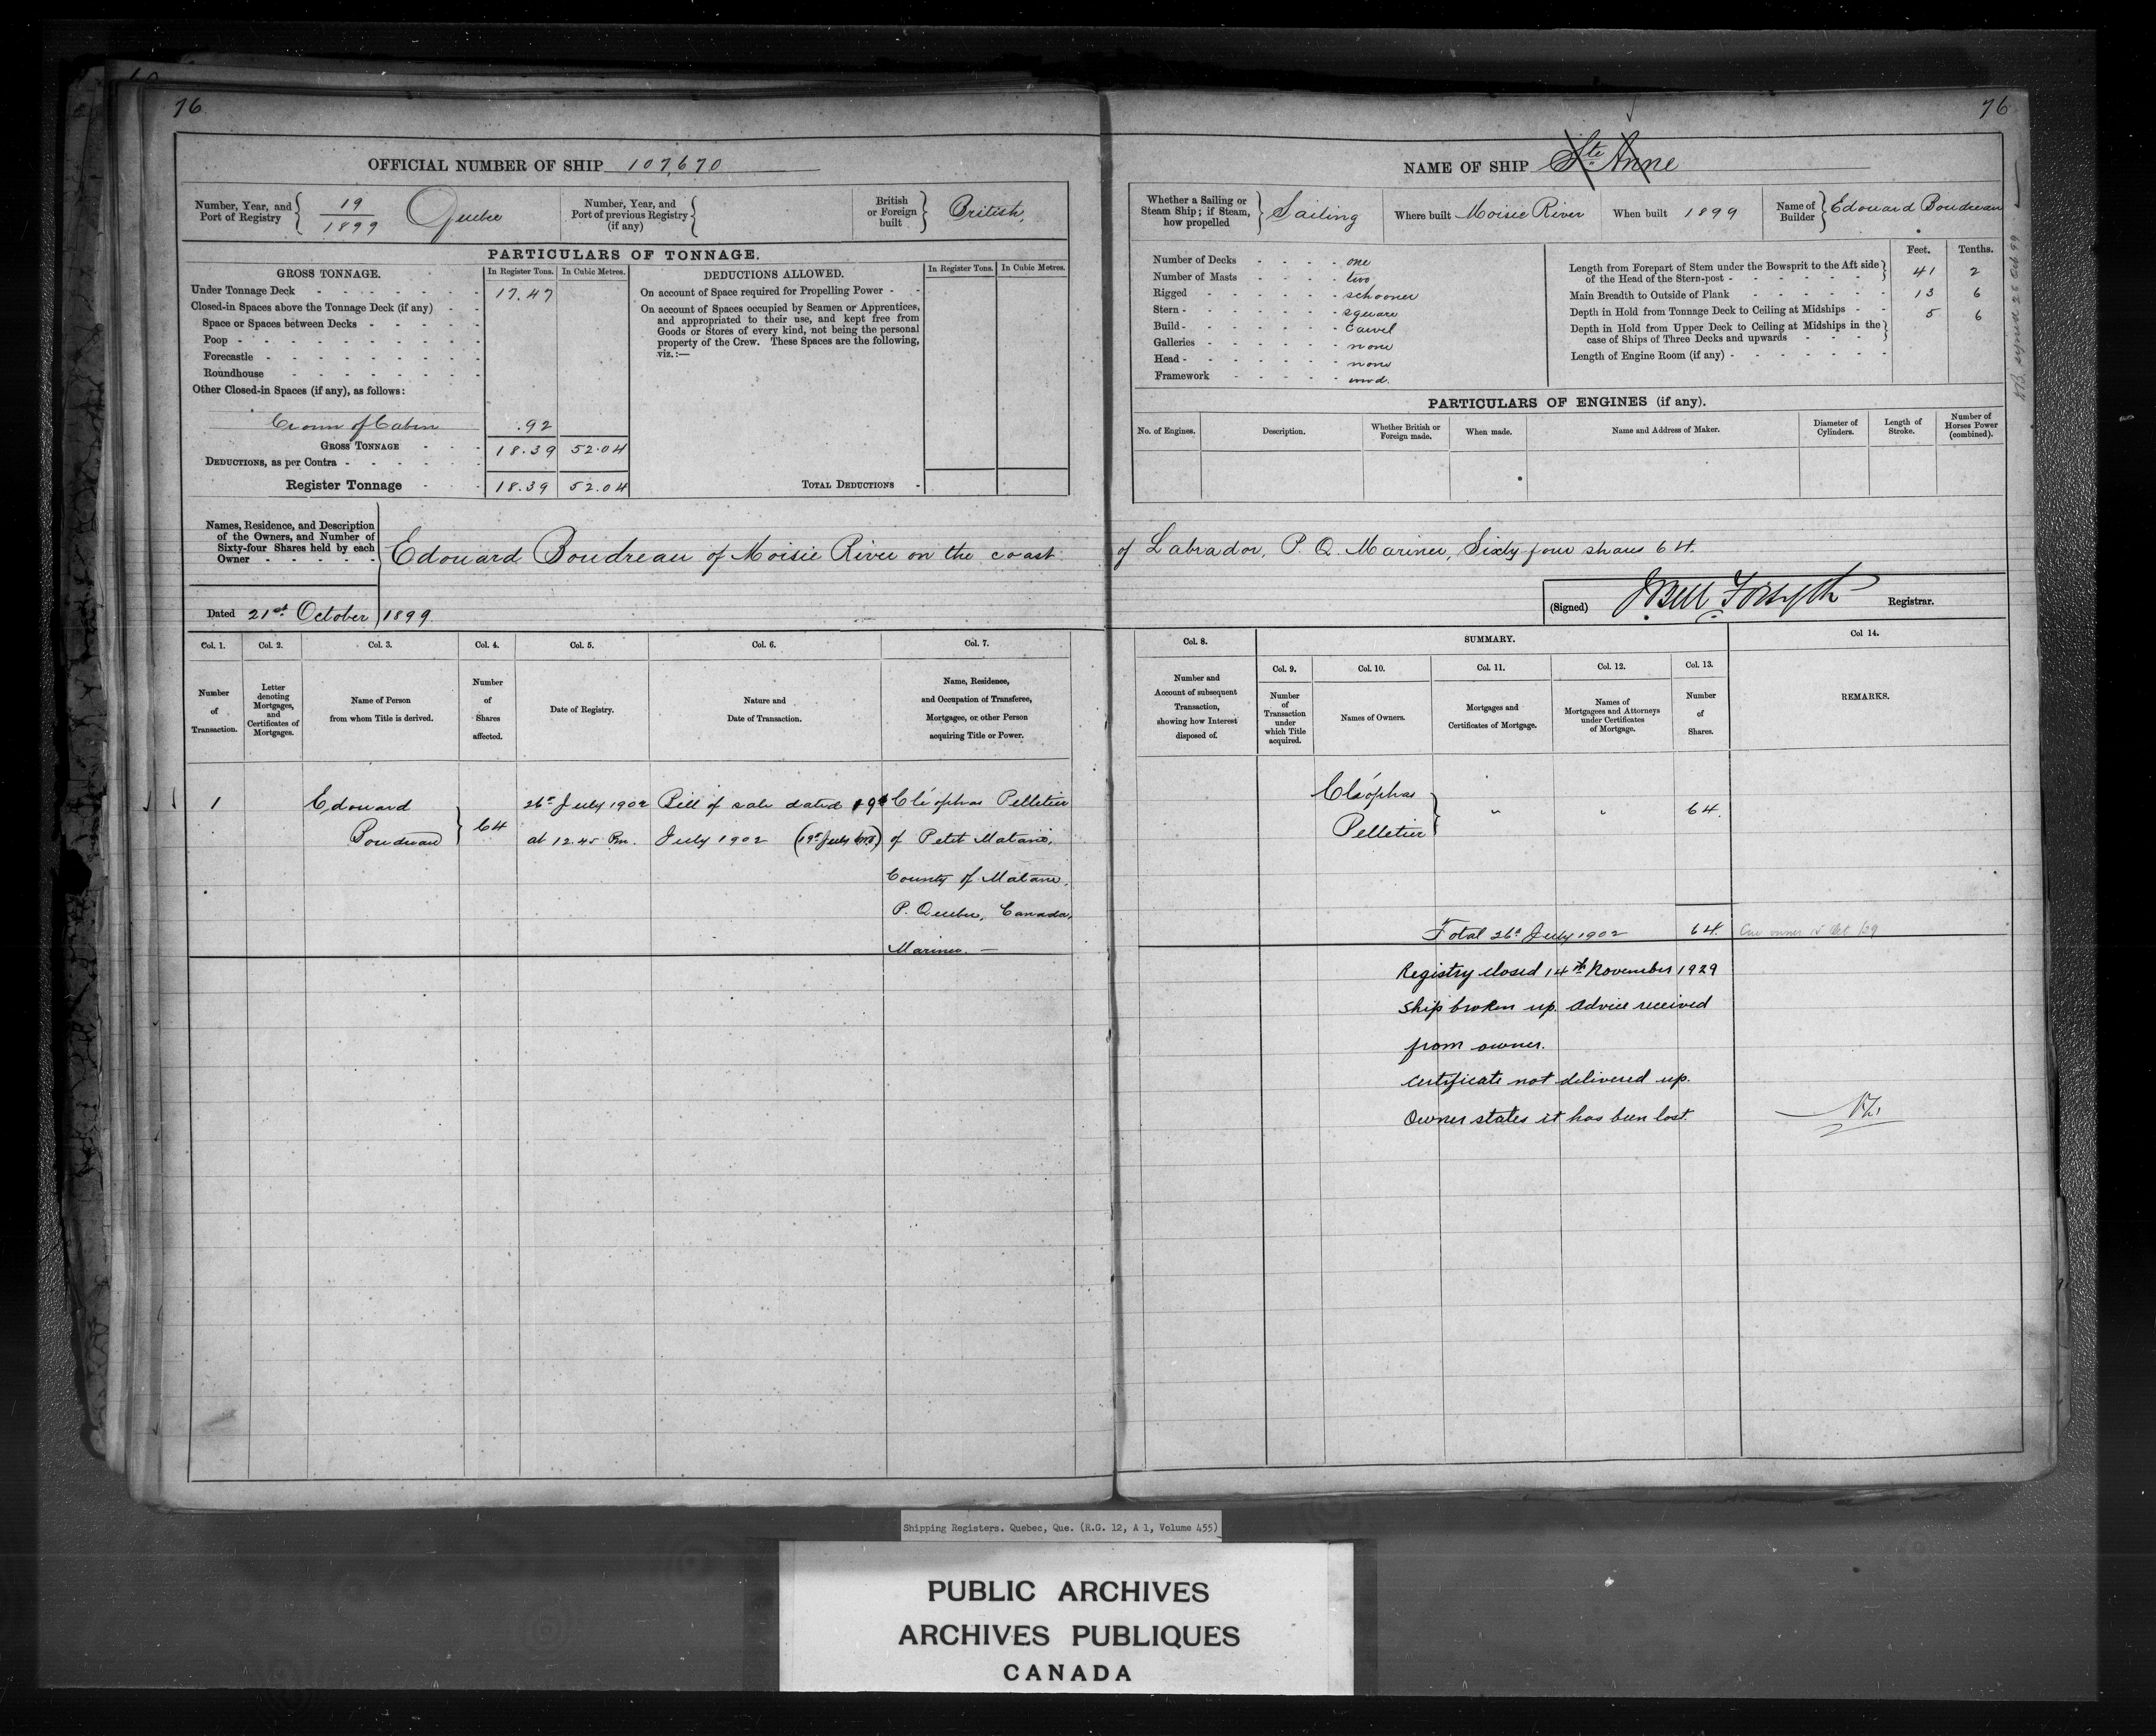 76
OFFICIAL NUMBER OF SHIP 107,670
Number, Year, and Port of Registry 19/1899 Quebec
Number, Year, and Port of previous Registry (if any)
British or Foreign built British,
PARTICULARS OF TONNAGE.
GROSS TONNAGE. In Register Tons. In Cubic Metres.
Under Tonnage Deck 17.47
Closed-in Spaces above the Tonnage Deck (if any)
Space or Spaces between Decks
Poop
Forecastle
Roundhouse
Other Closed-in Spaces (if any), as follows:
Crown of Cabin .92
GROSS TONNAGE 18.39 52.04
DEDUCTIONS, as per Contra
Register Tonnage 18.39 52.04
DEDUCTIONS ALLOWED. In Register Tons. In Cubic Metres.
On account of Space required for Propelling Power
On account of Spaces occupied by Seamen or Apprentices,
and appropriated to their use, and kept free from
Goods or Stores of every kind, not being the personal
property of the Crew. These Spaces are the following,
viz.:—
TOTAL DEDUCTIONS
76
NAME OF SHIP Ste Anne
Whether a Sailing or Steam Ship; if Steam, how propelled Sailing
Where built Moisie River
When built 1899
Name of Builder Edouard Boudreau
Number of Decks one
Number of Masts two
Rigged schooner
Stern square
Build carvel
Galleries none
Head none
Framework wood.
Feet. Tenths.
Length from Forepart of Stem under the Bowsprit to the Aft side
of the Head of the Stern-post 41 2
Main Breadth to Outside of Plank 13 6
Depth in Hold from Tonnage Deck to Ceiling at Midships 5 6
Depth in Hold from Upper Deck to Ceiling at Midships in the
case of Ships of Three Decks and upwards
Length of Engine Room (if any)
PARTICULARS OF ENGINES (if any).
No. of Engines.
Description.
Whether British or Foreign made.
When made.
Name and Address of Maker.
Diameter of Cylinders.
Length of Stroke.
Number of Horses Power (combined).
Names, Residence, and Description
of the Owners, and Number of
Sixty-four Shares held by each
Owner
Edouard Boudreau of Moisie River on the coast of Labrador, P. Q. Mariner, Sixty four shares 64.
Dated 21st October 1899
(Signed) J Bell Forsyth Registrar.
Col. 1. Number of Transaction.
Col. 2. Letter denoting Mortgages, and Certificates of Mortgages.
Col. 3. Name of Person from whom Title is derived.
Col. 4. Number of Shares affected.
Col. 5. Date of Registry.
Col. 6. Nature and Date of Transaction.
Col. 7. Name, Residence, and Occupation of Transferee, Mortgagee, or other Person acquiring Title or Power.
Col. 8. Number and Account of subsequent Transaction, showing how Interest disposed of.
SUMMARY.
Col. 9. Number of Transaction under which Title acquired.
Col. 10. Names of Owners.
Col. 11. Mortgages and Certificates of Mortgage.
Col. 12. Names of Mortgagees and Attorneys under Certificates of Mortgage.
Col. 13. Number of Shares.
Col 14. REMARKS.
1
Edouard
Boudreau
64
26th July 1902
at 12.45 Pm.
Bill of sale dated 19th
July 1902
Cléophas Pelletier
of Petit Matane,
County of Matane,
P. Quebec, Canada,
Mariner. —
Cléophas
Pelletier
" "
64.
Total 26th July 1902 64.
Registry closed 14th November 1929
Ship broken up. Advice received
from owner.
Certificate not delivered up.
Owner states it has been lost.
Shipping Registers. Quebec, Que. (R.G. 12, A 1, Volume 455)
PUBLIC ARCHIVES
ARCHIVES PUBLIQUES
CANADA